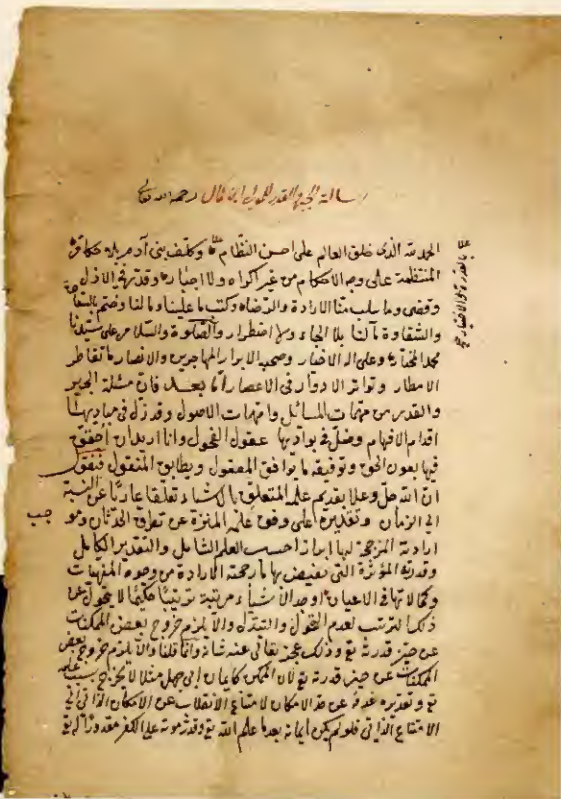 رسالة الجبر والقدر للمولى ابن كمال رحمه الله تعالى
الحمد لله الذى خلق العالم على احسن النظام وكلف بنى آدم
المنتظمة على وجه الاحكام من غير اكراه ولا اجبار وقدر فى الازل
وقضى وما سلب منا الارادة والرضاء وكتب ما علينا وما لنا وختم بالسعادة
والشقاوة مآلنا بلا الجاء ولا اضطرار والصلوة والسلام على سيدنا
محمد المختار وعلى اله الاخيار وصحبه الابرار المهاجرين والانصار ما تقاطر
الامطار وتواتر الادوار فى الاعصار اما بعد فان مسئلة الجبر
والقدر من مهمات المسائل وامهات الاصول وقد زل فى مباديها
اقدام الافهام وضل فى بواديها عقول الفحول وانا اريد ان احقق
فيها بعون الحق وتوفيقه ما يوافق المعقول ويطابق المنقول فنقول
ان الله جل وعلا بقديم علمه المتعلق بالاشياء تعلقا عاريا عن النسبة
الى الزمان وتقديره على وفق علمه المنزه عن تعلق الحدثان وهو
ارادته المرجحة لها حسب العلم الشامل والتقدير الكامل
وقدرته المؤثرة التى تفيض بها ما رجحته الارادة من وجوه المهيات
وكمالاتها فى الاعيان اوجد الاشياء مرتبة ترتيبا حكيما لا يتحول عن
ذلك الترتيب لعدم التحول والتبدل والا يلزم خروج بعض الممكنات
عن حيز قدرته تع وذلك عجز تعالى عنه شانه وانما قلنا والا يلزم خروج بعض
الممكنات عن حيز قدرته تع لان الممكن كايمان ابى جهل مثلا لا يخرج بسبب علمه
تع وتقديره عدمه عن حد الامكان لامتناع الانقلاب عن الامكان الذاتى الى
الامتناع الذاتى فلو لم يكن ايمانه بعدما علم الله تع وقدر موته على الكفر مقدورا له تع
بالقدرة والاختيار